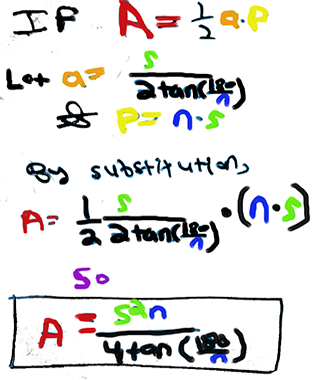 IF A = 1/2 a·P
Let a = s/(2tan(180/n))
& P = n·s
By substitution,
A = 1/2 s/(2tan(180/n)) · (n·s)
So
A = s²n/(4tan(180/n))